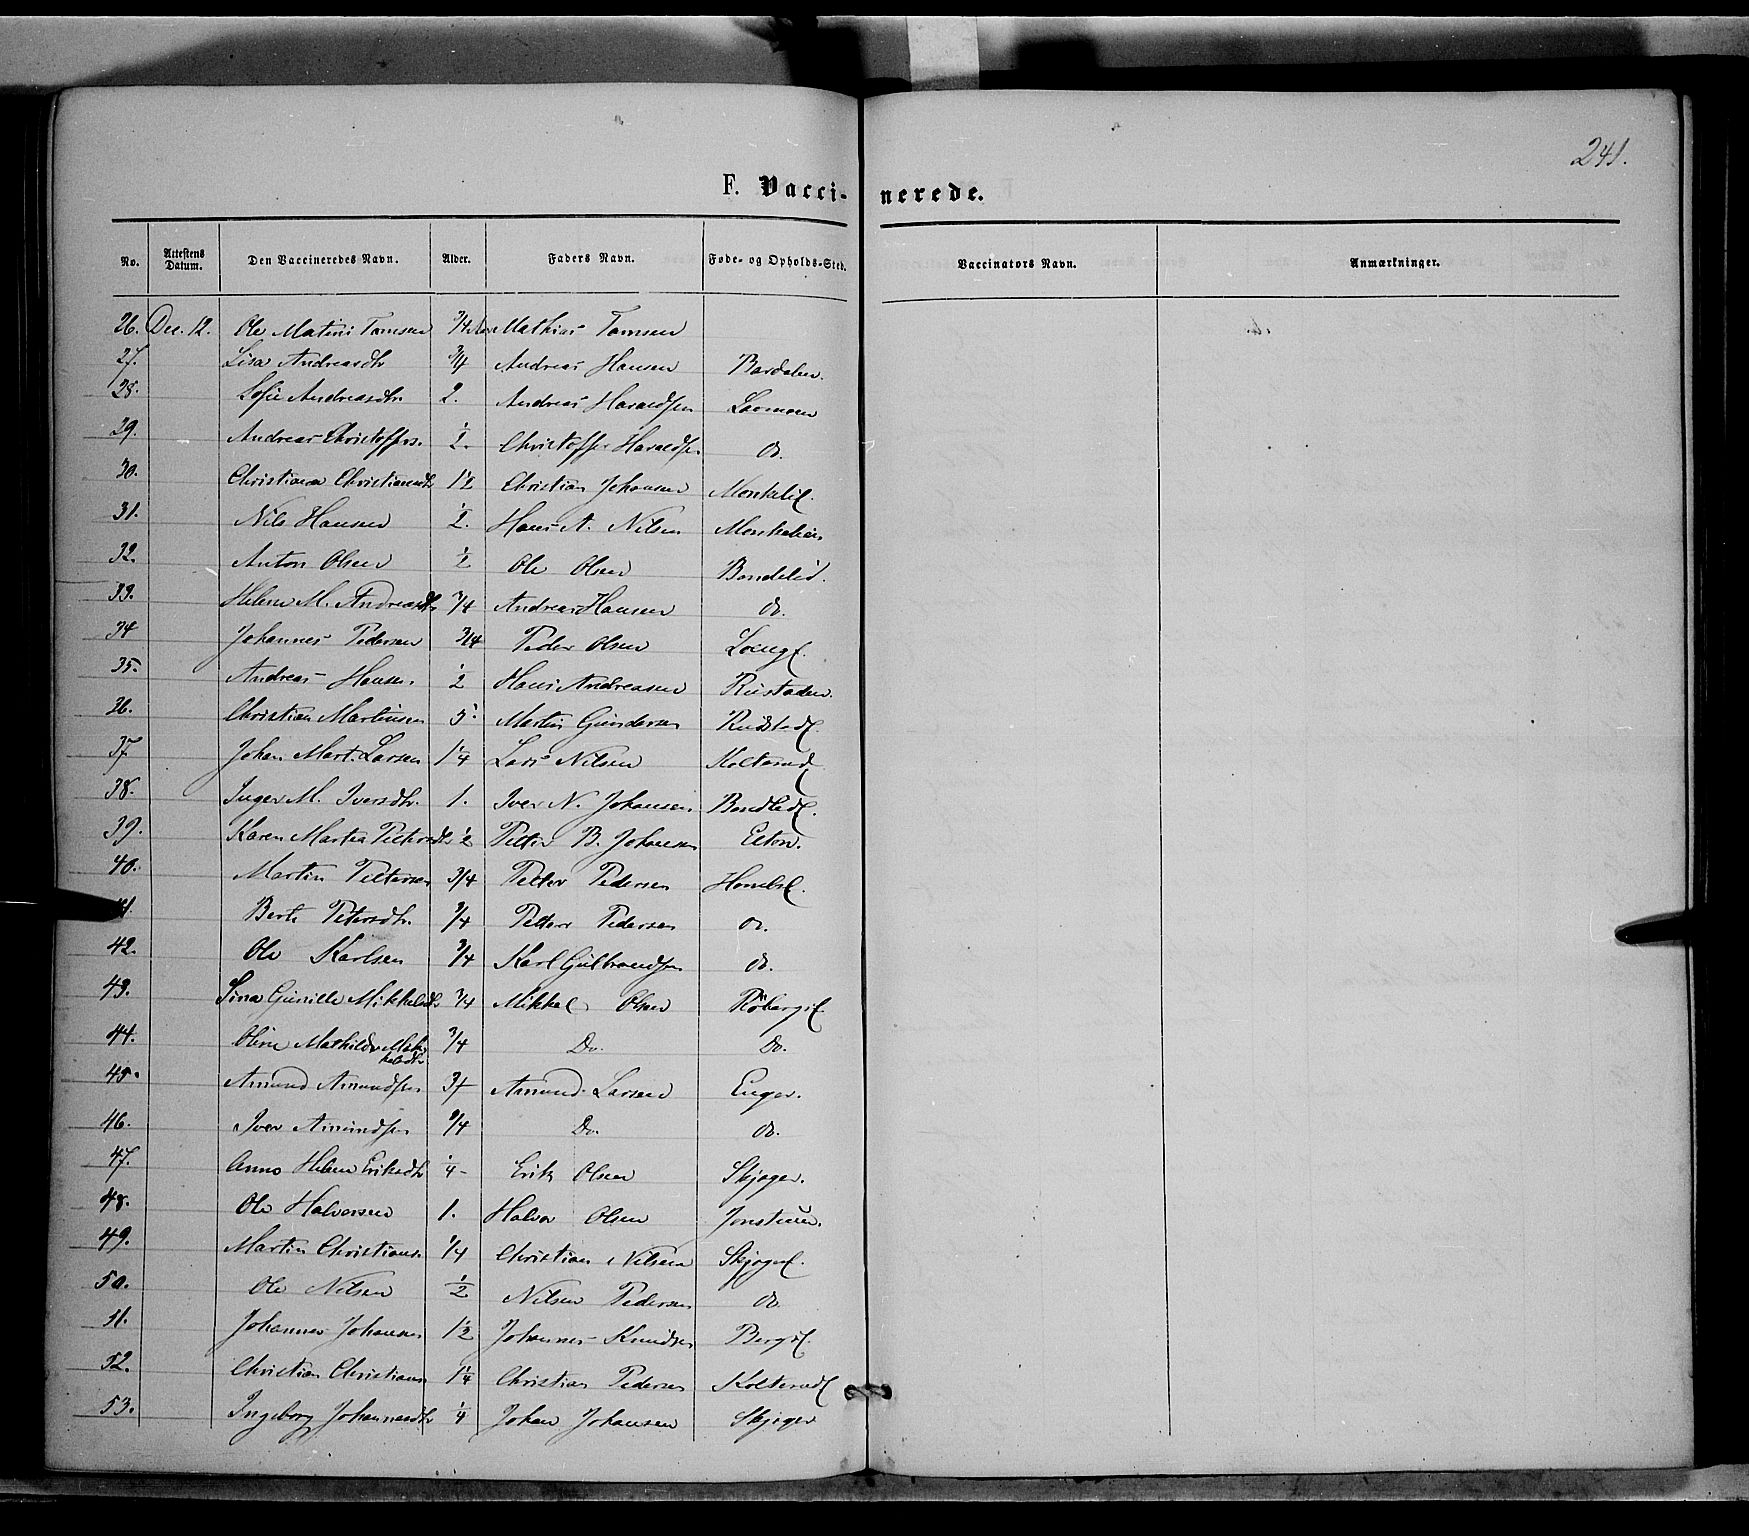 241.
F. Vaccinerede.
No. Attestens Datum. Den Vaccineredes Navn. Alder. Faders Navn. Føde- og Opholds-Sted. Vaccinators Navn. Anmærkninger.
26. Dec. 12. Ole Matini Tomsen 3/4 Mathias Tomsen
27. Lisa Andreasdtr 3/4 Andreas Hansen Bardalen.
28. Sofie Andreasdtr. 2. Andreas Haraldsen
29. Andreas Christoffers. 1/2. Christoffer Haraldsen do.
30. Christiane Christiansdtr 1 1/2 Christian Johansen
31. Nils Hansen 1/2. Hans A. Nilsen
32. Anton Olsen 1/2 Ole Olsen Bondelid.
33. Helene M. Andreasdtr 3/4 Andreas Hansen do.
34 Johannes Pedersen 3/4 Peder Olsen
35. Andreas Hansen 1/2 Hans Andreasen Rustaden.
36. Christian Martinsen 5. Martin Gundersen
37. Johan Mart. Larsen 1 1/4 Lars Nilsen Kolterud
38. Inger M. Iversdtr. 1. Iver N. Johansen
39. Karen Martea Pettersdtr 1/2 Petter B. Johansen Eeton.
40. Martin Pettersen 3/4 Petter Pedersen
41. Berte Petersdtr. 9/4 Petter Pedersen do.
42. Ole Karlsen 3/4 Karl Gulbrandsen do.
43. Sina Gunille Mikkelsdtr 3/4 Mikkel Olsen
44. Oline Mathilde Mikkelsdtr. 3/4 Do. Do.
45. Amund Amundsen Amund Larsen Enger.
46. Iver Amundsen 9/4 Do. do.
47. Anne Helene Eriksdtr 1/4 Erik Olsen Skjøger.
48. Ole Halvorsen 1. Halvor Olsen
49. Martin Christians. 1/4 Christian Nilsen
50. Ole Nilsen 1/2 Nilsen Pedersen do.
51. Johannes Johansen 1 1/2 Johannes Knudsen
52. Christian Christians 1 1/4 Christian Pedersen
53. Ingeborg Johannesdtr 1/4 Johan Johansen Skjøger